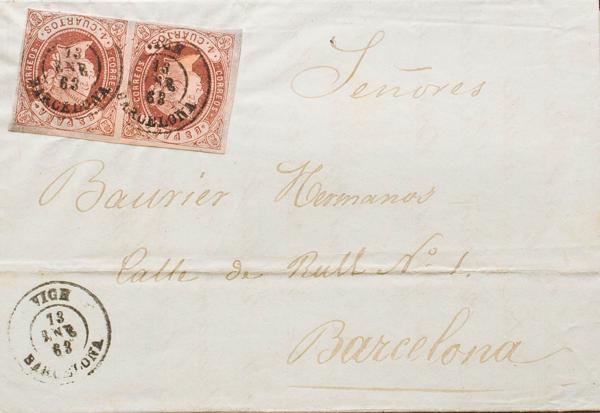 4 CUARTOS 4 CUARTOS
CORREOS CORREOS CORREOS CORREOS
ESPAÑA ESPAÑA
13
ENE
63
BARCELONA
VICH
13
ENE
63
BARCELONA
Señores
Baurier Hermanos
Calle de Rull Nº 1.
Barcelona
VICH
13
ENE
63
BARCELONA